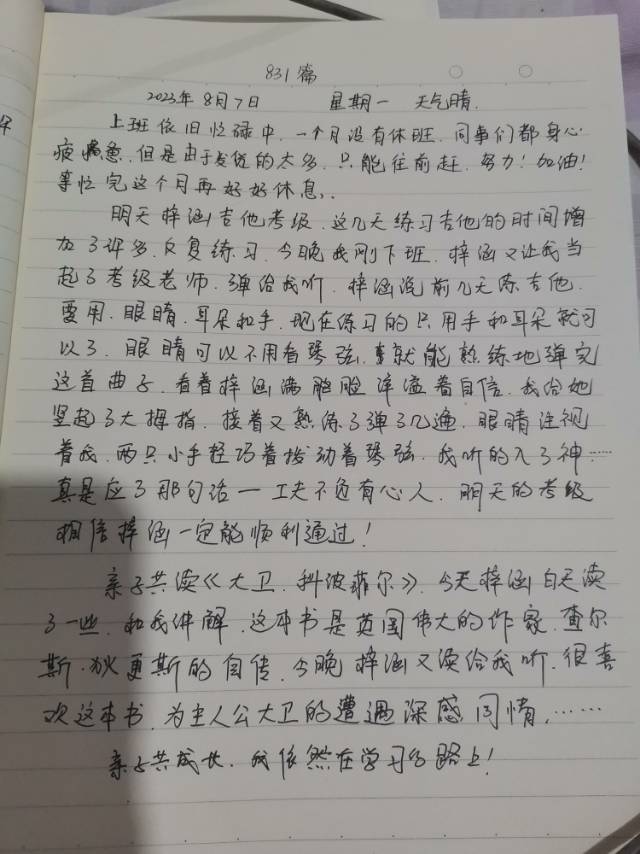 831篇
2023年8月7日 星期一 天气晴.
上班依旧忙碌中.一个月没有休班.同事们都身心
疲惫.但是由于发货的太多.只能往前赶.努力!加油!
等忙完这个月再好好休息.
明天梓涵吉他考级.这几天练习吉他的时间增
加了许多.反复练习.今晚我刚下班.梓涵又让我当
起了考级老师.弹给我听.梓涵说前几天练吉他.
要用.眼睛.耳朵和手.现在练习的只用手和耳朵就可
以了.眼睛可以不用看琴弦.就能熟练地弹完
这首曲子.看着梓涵满脸洋溢着自信.我给她
竖起了大拇指.接着又熟练了弹了几遍.眼睛注视
着我.两只小手轻巧着拨动着琴弦.我听的入了神……
真是应了那句话一工夫不负有心人.明天的考级
相信梓涵一定能顺利通过!
亲子共读《大卫.科波菲尔》.今天梓涵白天读
了一些.和我讲解.这本书是英国伟大的作家.查尔
斯.狄更斯的自传.今晚梓涵又读给我听.很喜
欢这本书.为主人公大卫的遭遇深感同情.……
亲子共成长.我依然在学习的路上!